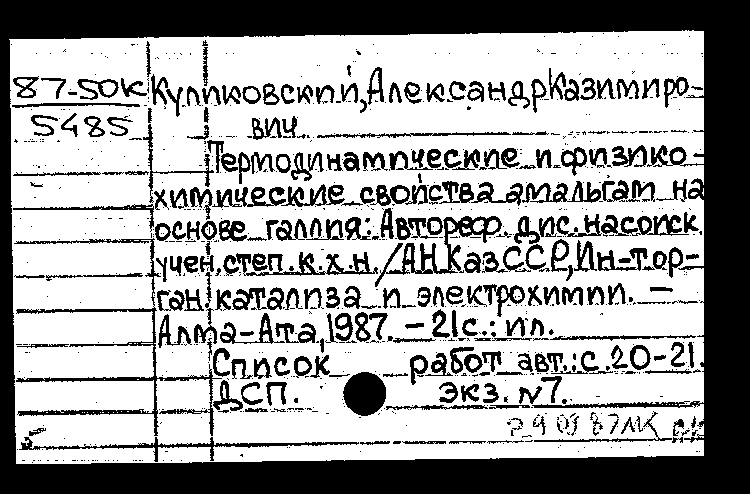 87-50К Куликовский, Александр Казимиро-
5485 вич
Термодинамические и физико-
химические свойства амальгам на
основе галлия: Автореф. дис. на соиск.
учен. степ. к.х.н. / АН КазССР, Ин-т ор-
ган. катализа и электрохимии. —
Алма-Ата, 1987. – 21с.: ил.
Список работ авт.: с. 20-21.
ДСП. экз. №7.